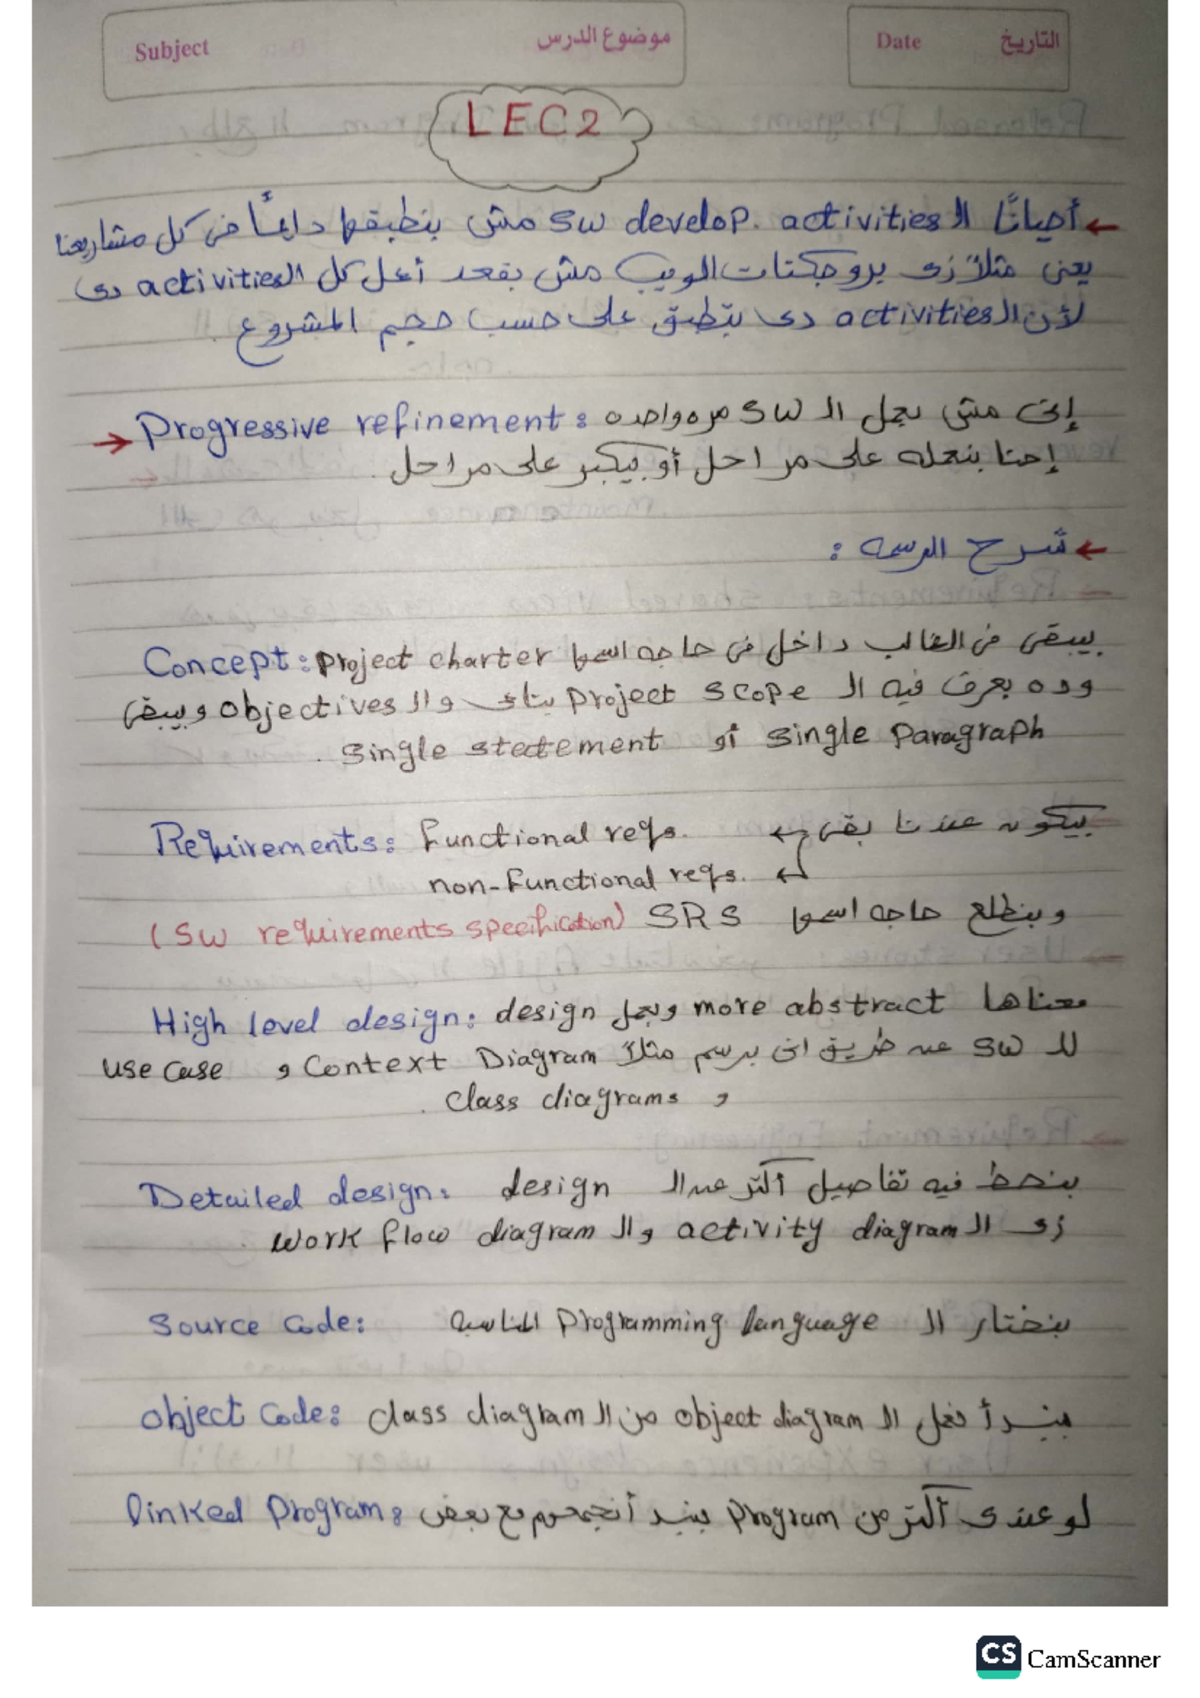 Subject موضوع الدرس Date التاريخ
LEC2
← أحيانًا الـ sw develop. activities مش بنطبقها دايمًا فى كل مشاريعنا
يعنى مثلاً زى بروجكتات الويب مش بقعد أعمل كل الـ activities دى
لأن الـ activities دى بتطبق على حسب حجم المشروع.
→ Progressive refinement: إنى مش بعمل الـ sw مره واحده
إحنا بنعمله على مراحل أو بيكبر على مراحل.
← شرح الرسمه :
Concept: بيبقى فى الغالب داخل فى حاجه اسمها Project charter
وده بعرف فيه الـ Project scope بتاعى والـ objectives وبيبقى
single paragraph أو single statement.
Requirements: بيكون عندنا بقى ← Functional reqs.
← non-functional reqs.
وبنطلع حاجه اسمها SRS (SW requirements specification)
High level design: معناها more abstract وبعمل design
للـ sw عن طريق انى برسم مثلاً Context Diagram و use case
و class diagrams.
Detailed design: بنحط فيه تفاصيل أكتر عن الـ design
زى الـ activity diagram والـ work flow diagram.
Source Code: بنختار الـ Programming language المناسبه
object Code: بنبدأ نعمل الـ object diagram من الـ class diagram
linked Program: لو عندى أكتر من Program بنبدأ نجمعهم مع بعض
CS CamScanner